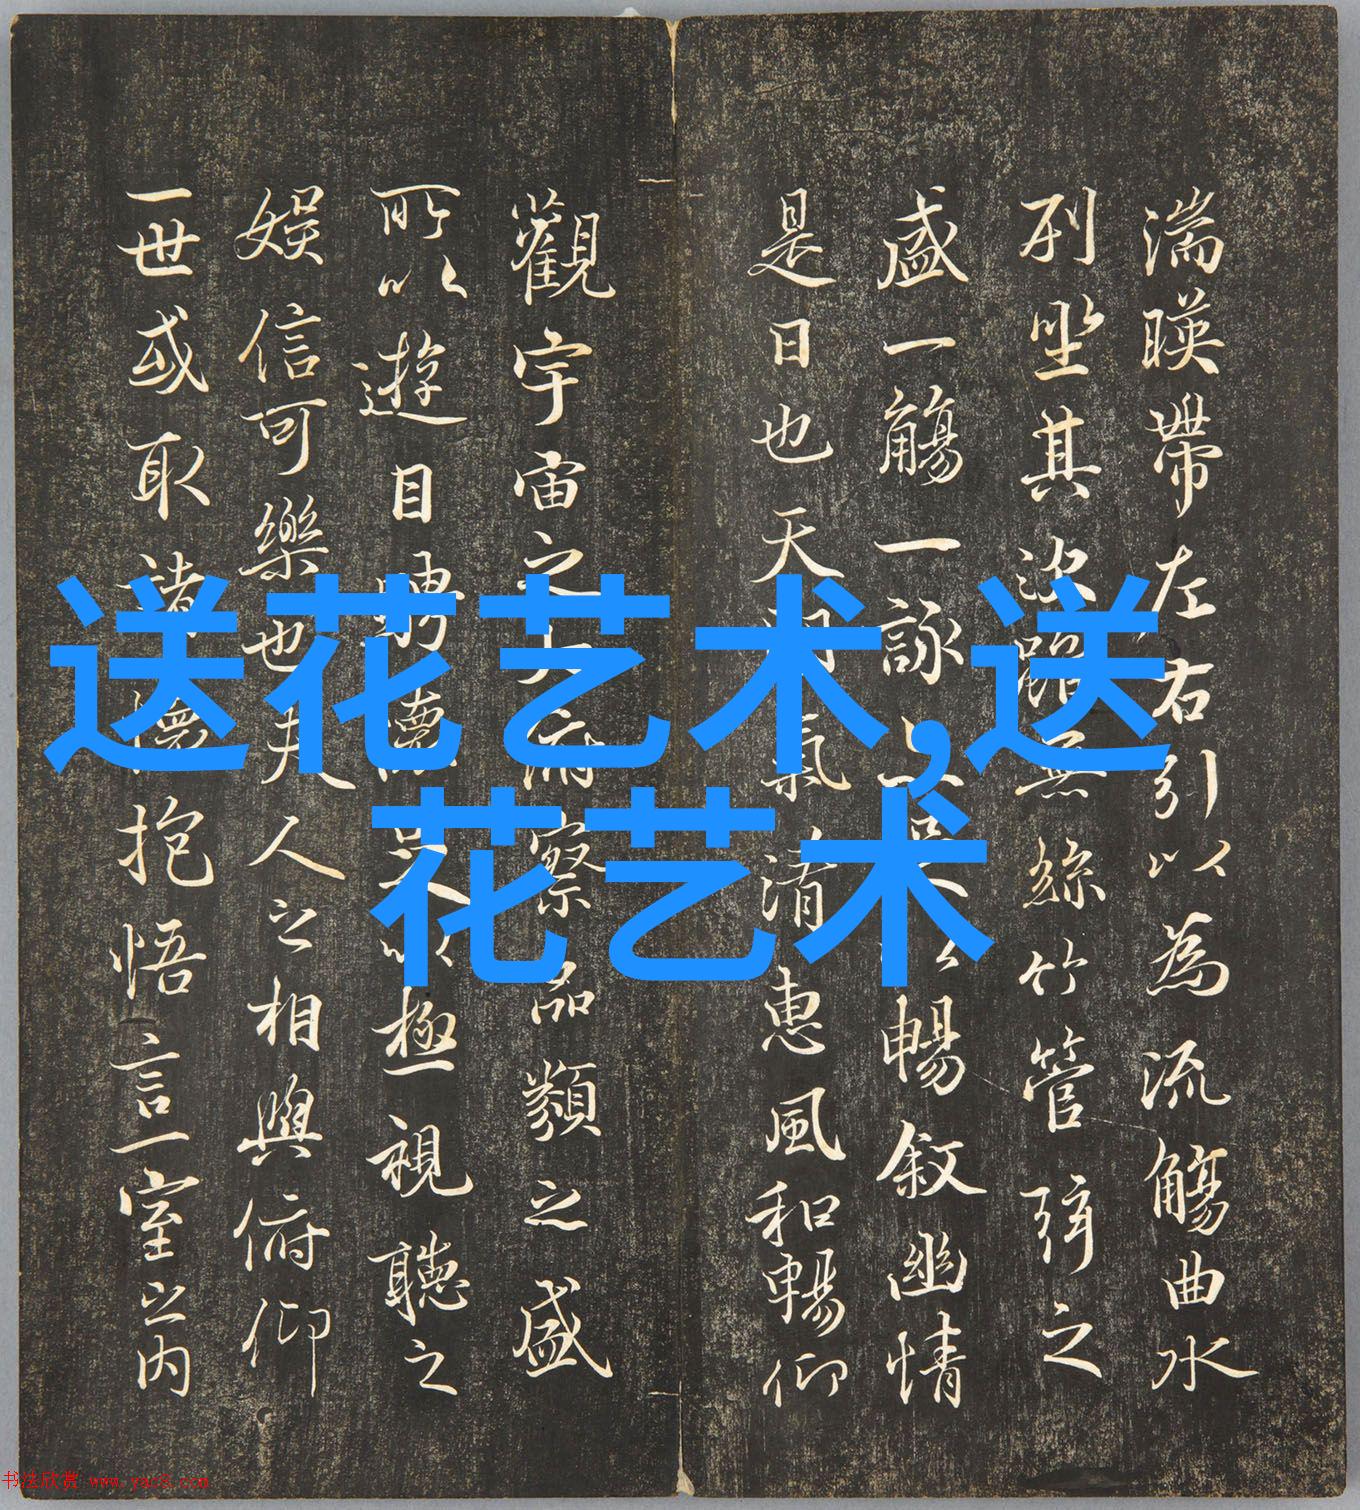 湍暎帶左右引以為流觴曲水
列坐其次雖無絲竹管弦之
盛一觴一詠暢敘幽情
是日也天氣清惠風和暢仰
觀宇宙之俯察品類之盛
所以遊目騁懷極視聽之
娛信可樂也夫人之相與俯仰
一世或取諸懷抱悟言一室之内
送花艺术,送
花艺术
书法欣赏 www.yac8.com